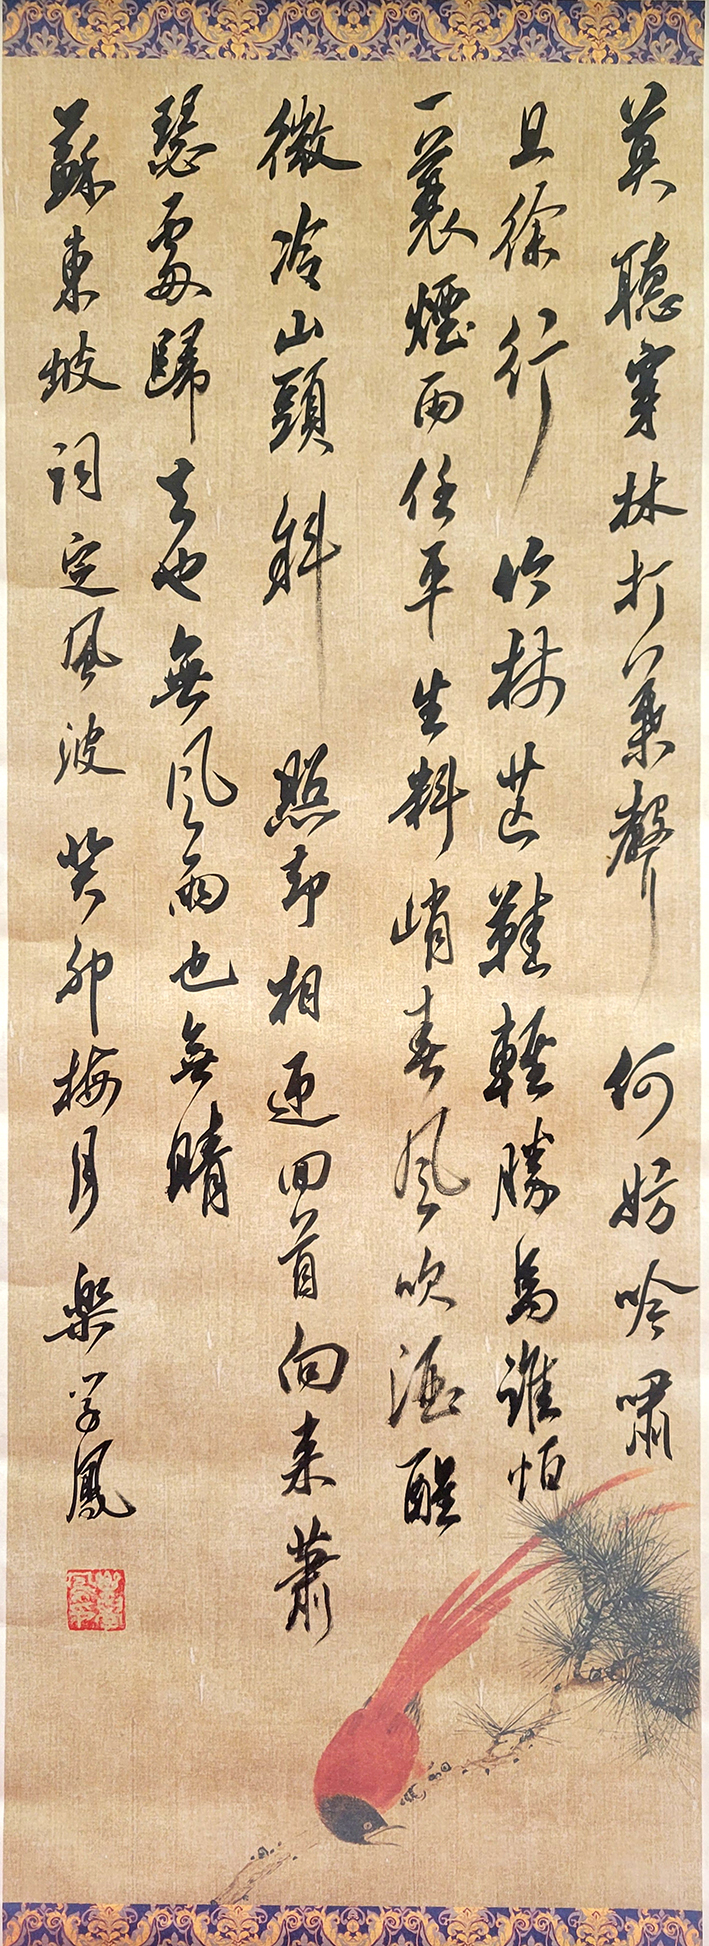 莫聽穿林打葉聲何妨吟嘯
且徐行竹杖芒鞋輕勝馬誰怕
一蓑煙雨任平生料峭春風吹酒醒
微冷山頭斜照却相迎回首向来蕭
瑟處歸去也無風雨也無晴
蘇東坡詞定風波癸卯梅月樂學鳳